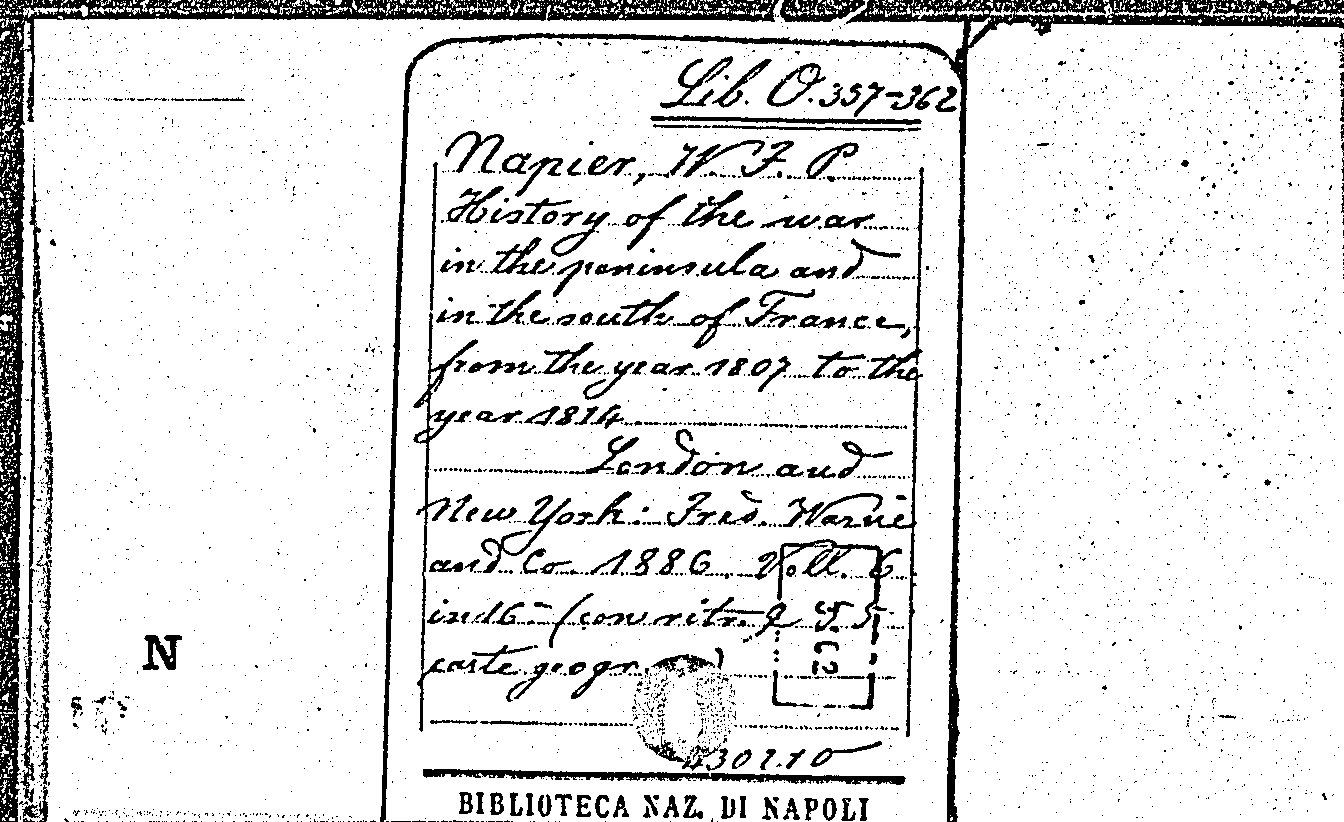 Lib. O. 357-362
Napier, W. F. P.
History of the war
in the peninsula and
in the south of France,
from the year 1807 to the
year 1814.
London and
New York: Fred. Warne
and Co. 1886. Voll. 6.
in 16- (con ritr. e 55
carte geogr. )
N
BIBLIOTECA NAZ. DI NAPOLI